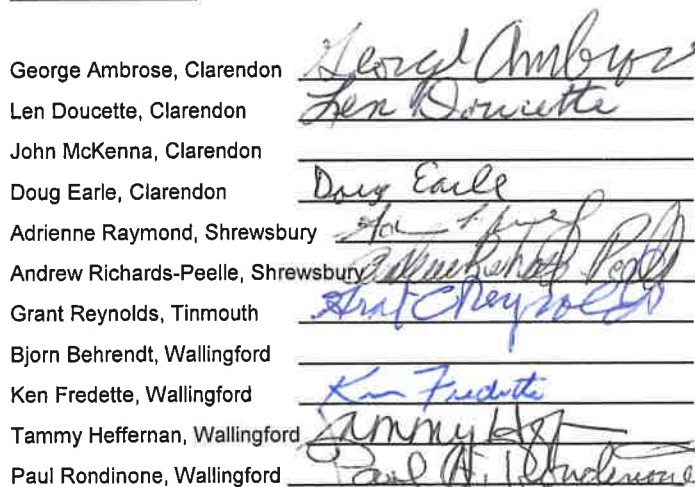 George Ambrose, Clarendon George Ambrose
Len Doucette, Clarendon Len Doucette
John McKenna, Clarendon
Doug Earle, Clarendon Doug Earle
Adrienne Raymond, Shrewsbury
Andrew Richards-Peelle, Shrewsbury
Grant Reynolds, Tinmouth Grant C Reynolds
Bjorn Behrendt, Wallingford
Ken Fredette, Wallingford Ken Fredette
Tammy Heffernan, Wallingford Tammy
Paul Rondinone, Wallingford Paul A. Rondinone